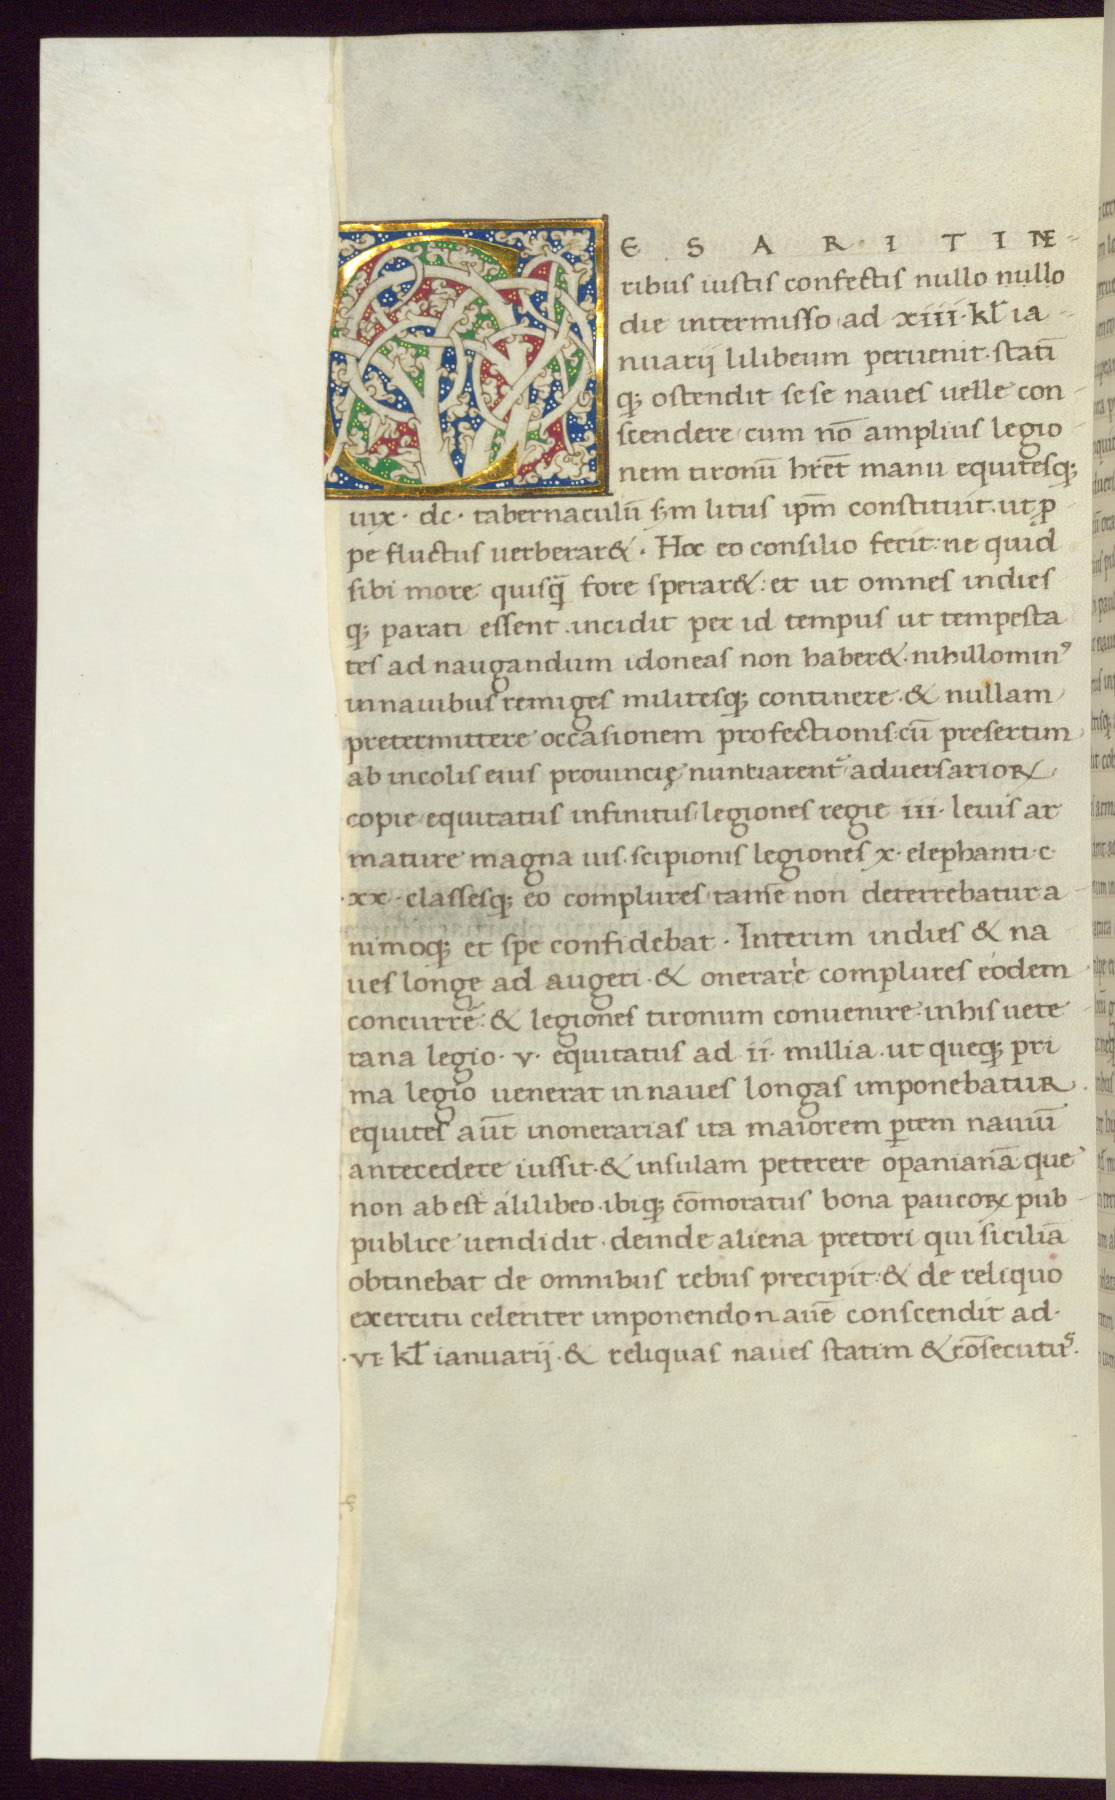 CESAR·ITINE-
ribus iustis confectis nullo nullo
die intermisso ad xiii·kl̅ ia-
nuarij lilibeum peruenit·stati̅
q; ostendit sese naues uelle con-
scendere cum no̅ amplius legio-
nem tironu̅ hr̅et̅ manu equitesq;
uix·dc·tabernaculu̅ s;m litus ip̅m constituit.ut ꝓ
pe fluctus uerberar&·Hoc eo consilio fecit:ne quid
sibi more quisq̅ fore sperar&:et ut omnes indies
q; parati essent.incidit per id tempus ut tempesta
tes ad naugandum idoneas non haber&·nihillominꝰ
innauibus remiges militesq; continere·& nullam
pretermittere occasionem profectionis:cu̅ presertim
ab incolis eius prouincię nuntiarent᷑ aduersarioꝝ
copie equitatus infinitus legiones regie iii·leuis ar
mature magna uis.scipionis legiones x·elephanti·c·
·xx·classesq; eo complures tame̅ non deterrebatur a-
nimoq; et spe confidebat·Interim indies & na
ues longe ad augeri·& onerare complures eodem
concurre̅:& legiones tironum conuenire:inhis uete-
rana legio·v·equitatus ad ii·millia.ut queq; pri
ma legio uenerat in naues longas imponebatur.
equites au̅t inonerarias ita maiorem ꝑtem nauiu̅
antecedere iussit·& insulam peterere opaniana̅ que
non abest a lilibeo.ibiq; co̅moratus bona paucoꝝ pub-
publice uendidit·deinde aliena pretori qui sicilia̅
obtinebat de omnibus rebus precipit:& de reliquo
exercitu celeriter imponendo naue̅ conscendit ad·
·vi·kl̅ ianuarij·& reliquas naues statim & co̅secutuꝰ.